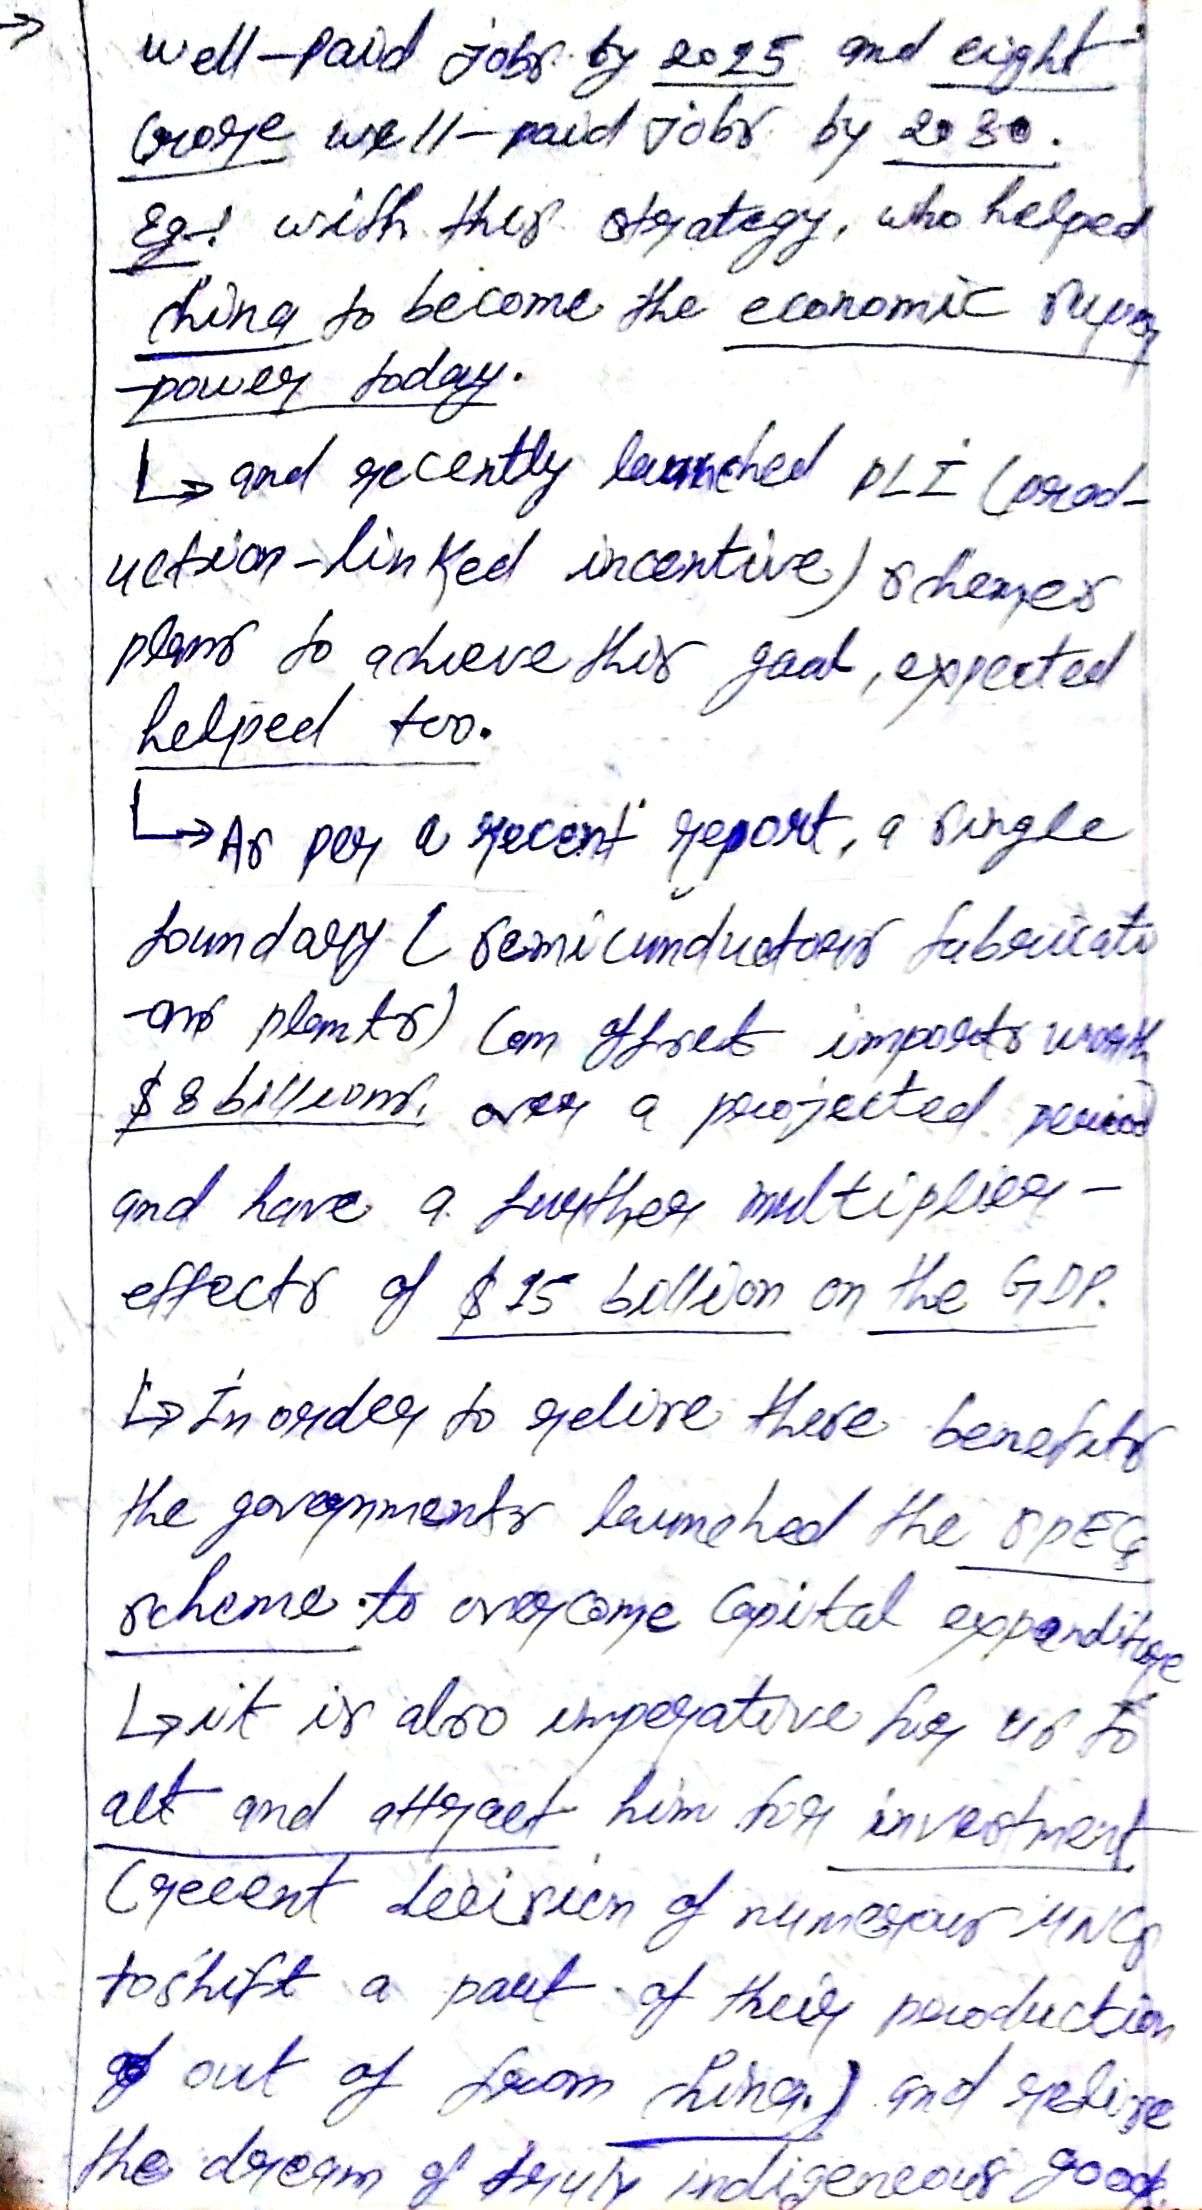 → well-paid jobs by 2025 and eight
crore well-paid jobs by 2030.
Eg:- with this strategy, who helped
China to become the economic super
-power today.
↳ and recently launched PLI (prod-
uction-linked incentive) schemes
plans to achieve this goal, expected
helped too.
↳ As per a recent report, a single
foundary (semiconductors fabricati
-ons plants) can offsets imports worth
$8 billions, over a projected period
and have a further multiplier-
effects of $15 billion on the GDP.
↳ In order to relise these benefits
the governments launched the SPECs
scheme. to overcome capital expenditure
↳ it is also imperative for us to
act and attract him for investment
(recent decision of numerous MNCs
to shift a part of their production
out of from China.) and relise
the dream of truly indigeneous goods.